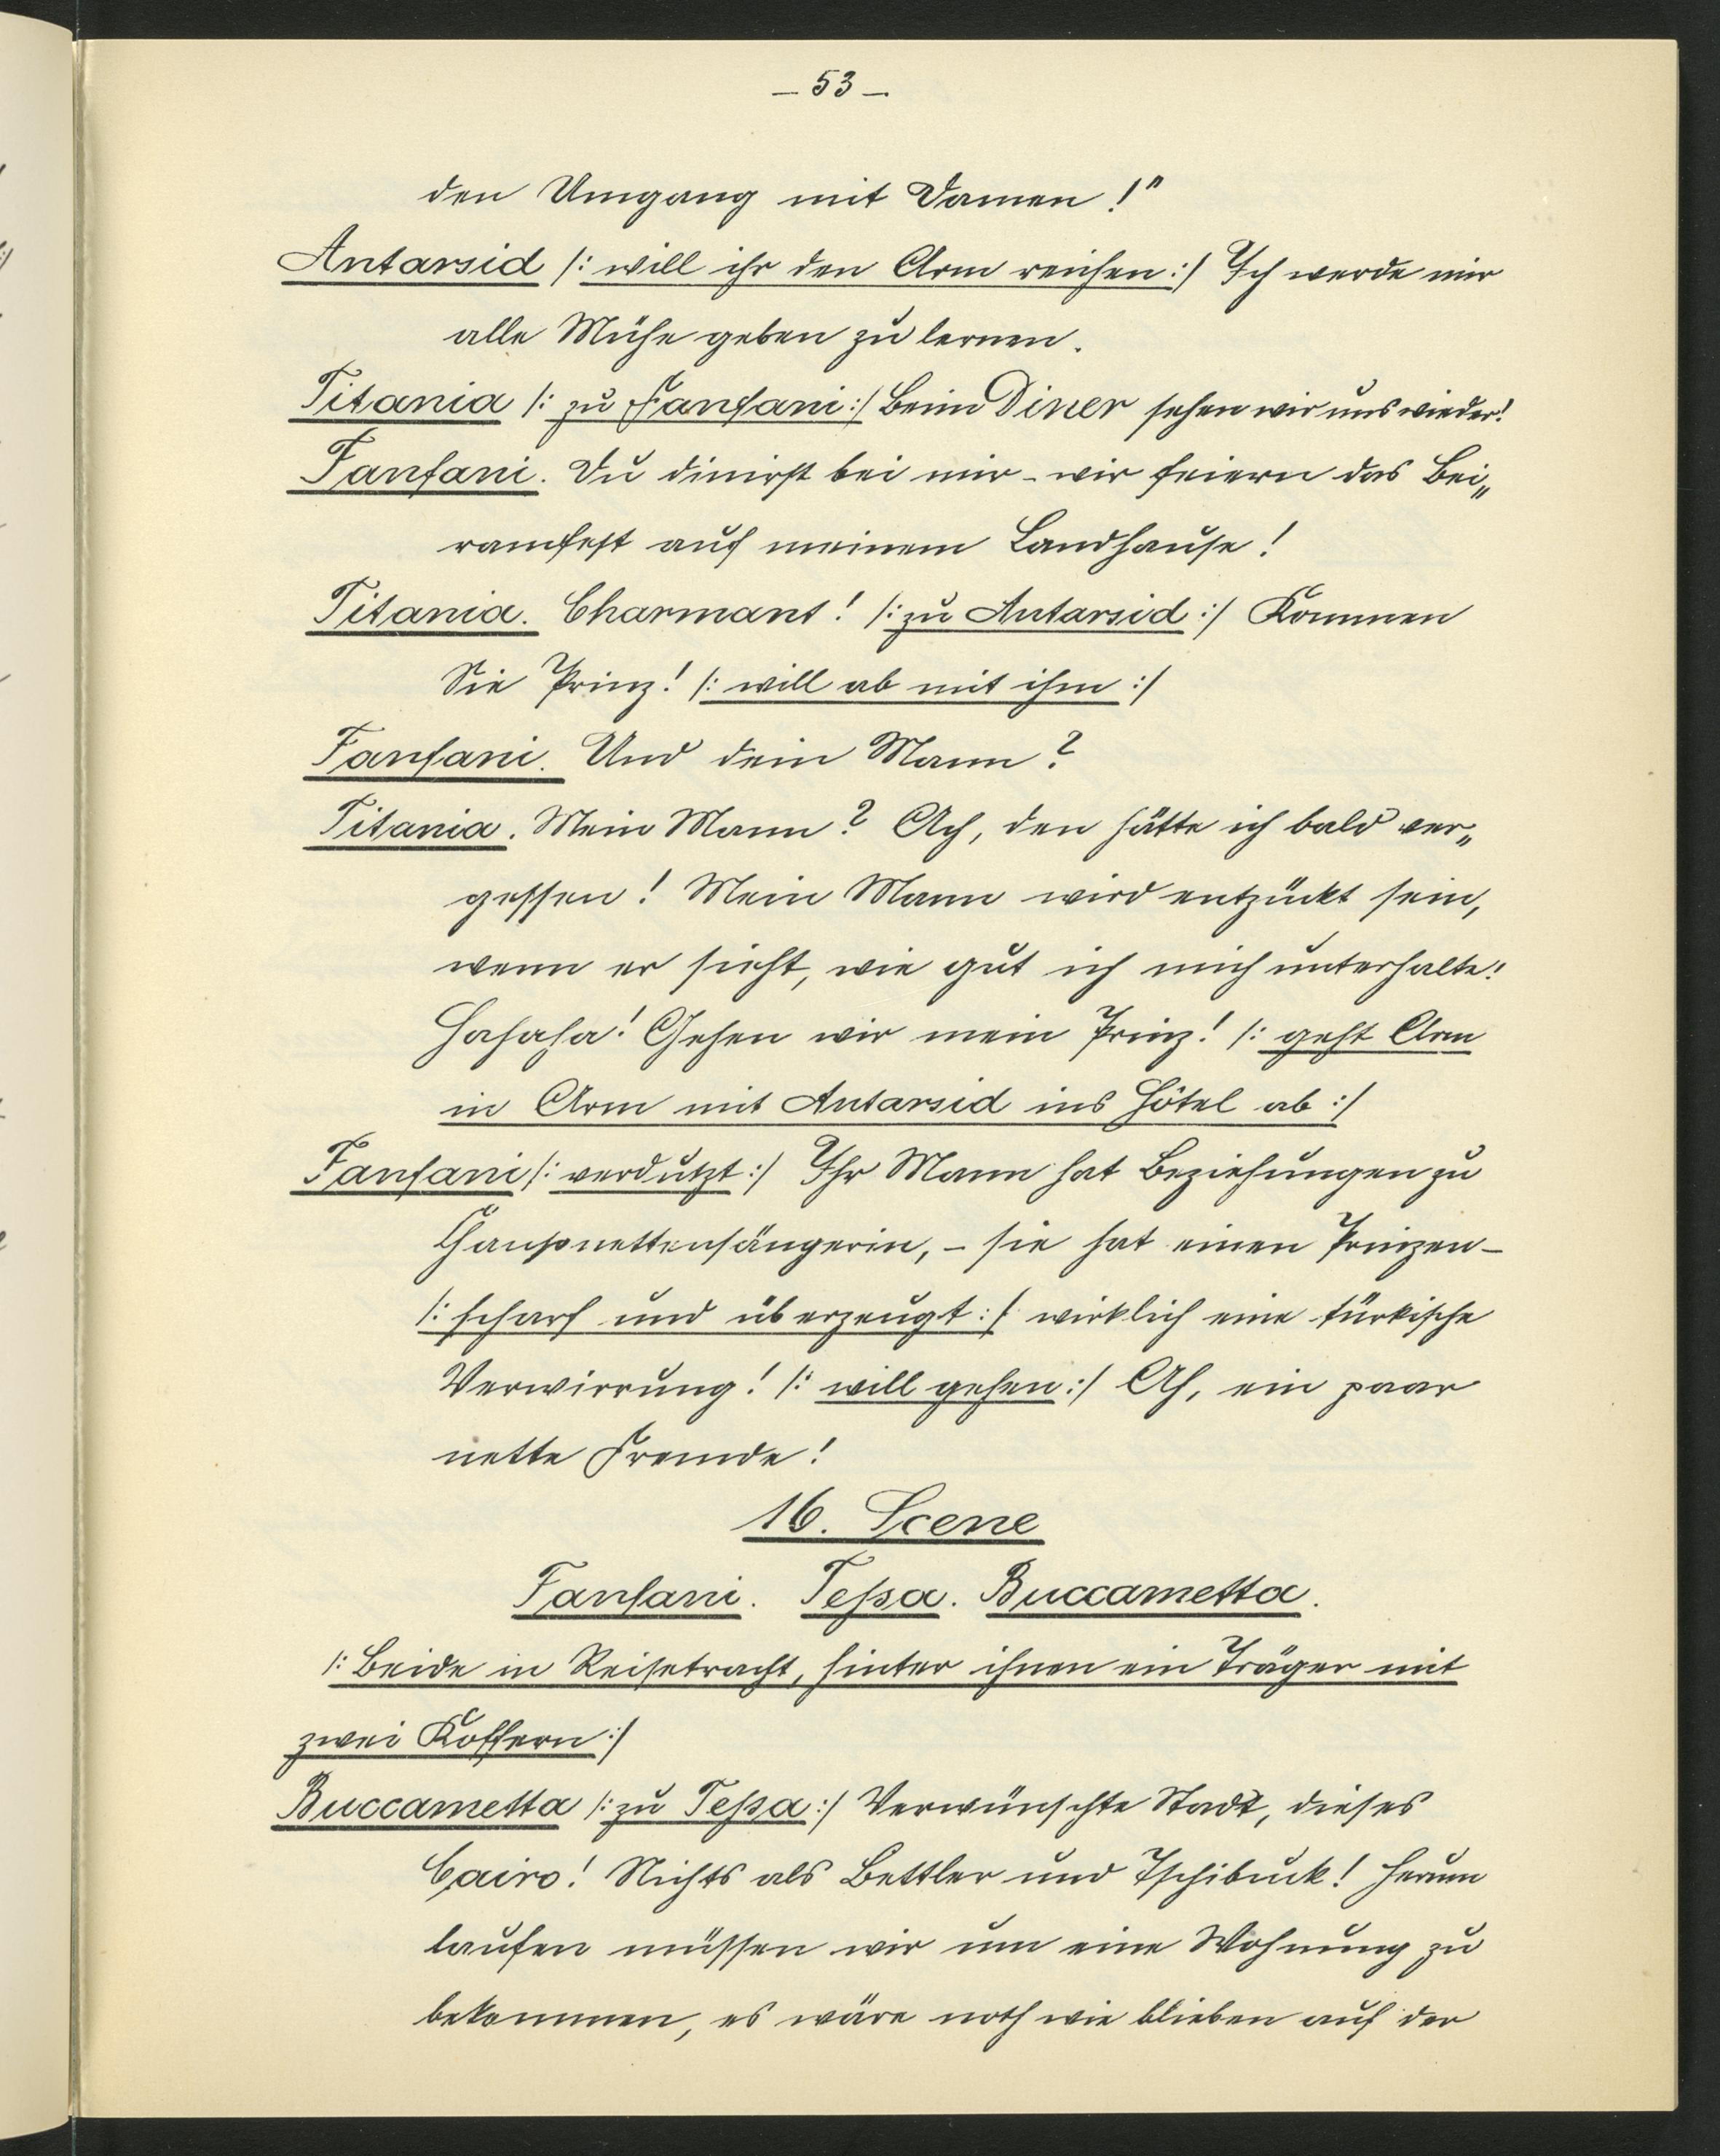 – 53 –
den Umgang mit Damen!"
Antarsid /: will ihr den Arm reichen :/ Ich werde mir
alle Mühe geben zu lernen.
Titania /: zu Fanfani :/ Beim Diner sehen wir uns wieder!
Fanfani. Du dinirst bei mir – wir feiern das Bei„
ramfest auf meinem Landhause!
Titania. Charmant! /: zu Antarsid :/ Kommen
Sie Prinz! /: will ab mit ihm :/
Fanfani. Und dein Mann?
Titania. Mein Mann? Ach, den hätte ich bald ver„
gessen! Mein Mann wird entzückt sein,
wenn er sieht, wie gut ich mich unterhalte!
Hahaha! Gehen wir mein Prinz! /: geht Arm
in Arm mit Antarsid ins Hôtel ab :/
Fanfani /: verdutzt :/ Ihr Mann hat Beziehungen zu
Chansonettensängerin, – sie hat einen Prinzen –
/: scharf und überzeugt :/ wirklich eine türkische
Verwirrung! /: will gehen :/ Ah, ein paar
nette Fremde!
16. Scene
Fanfani. Tessa. Buccametta.
/: Beide in Reisetracht, hinter ihnen ein Träger mit
zwei Koffern :/
Buccametta /: zu Tessa :/ Verwünschte Stadt, dieses
Cairo! Nichts als Bettler und Tschibuck! Herum
laufen müssen wir um eine Wohnung zu
bekommen, es wäre noth wie blieben auf der